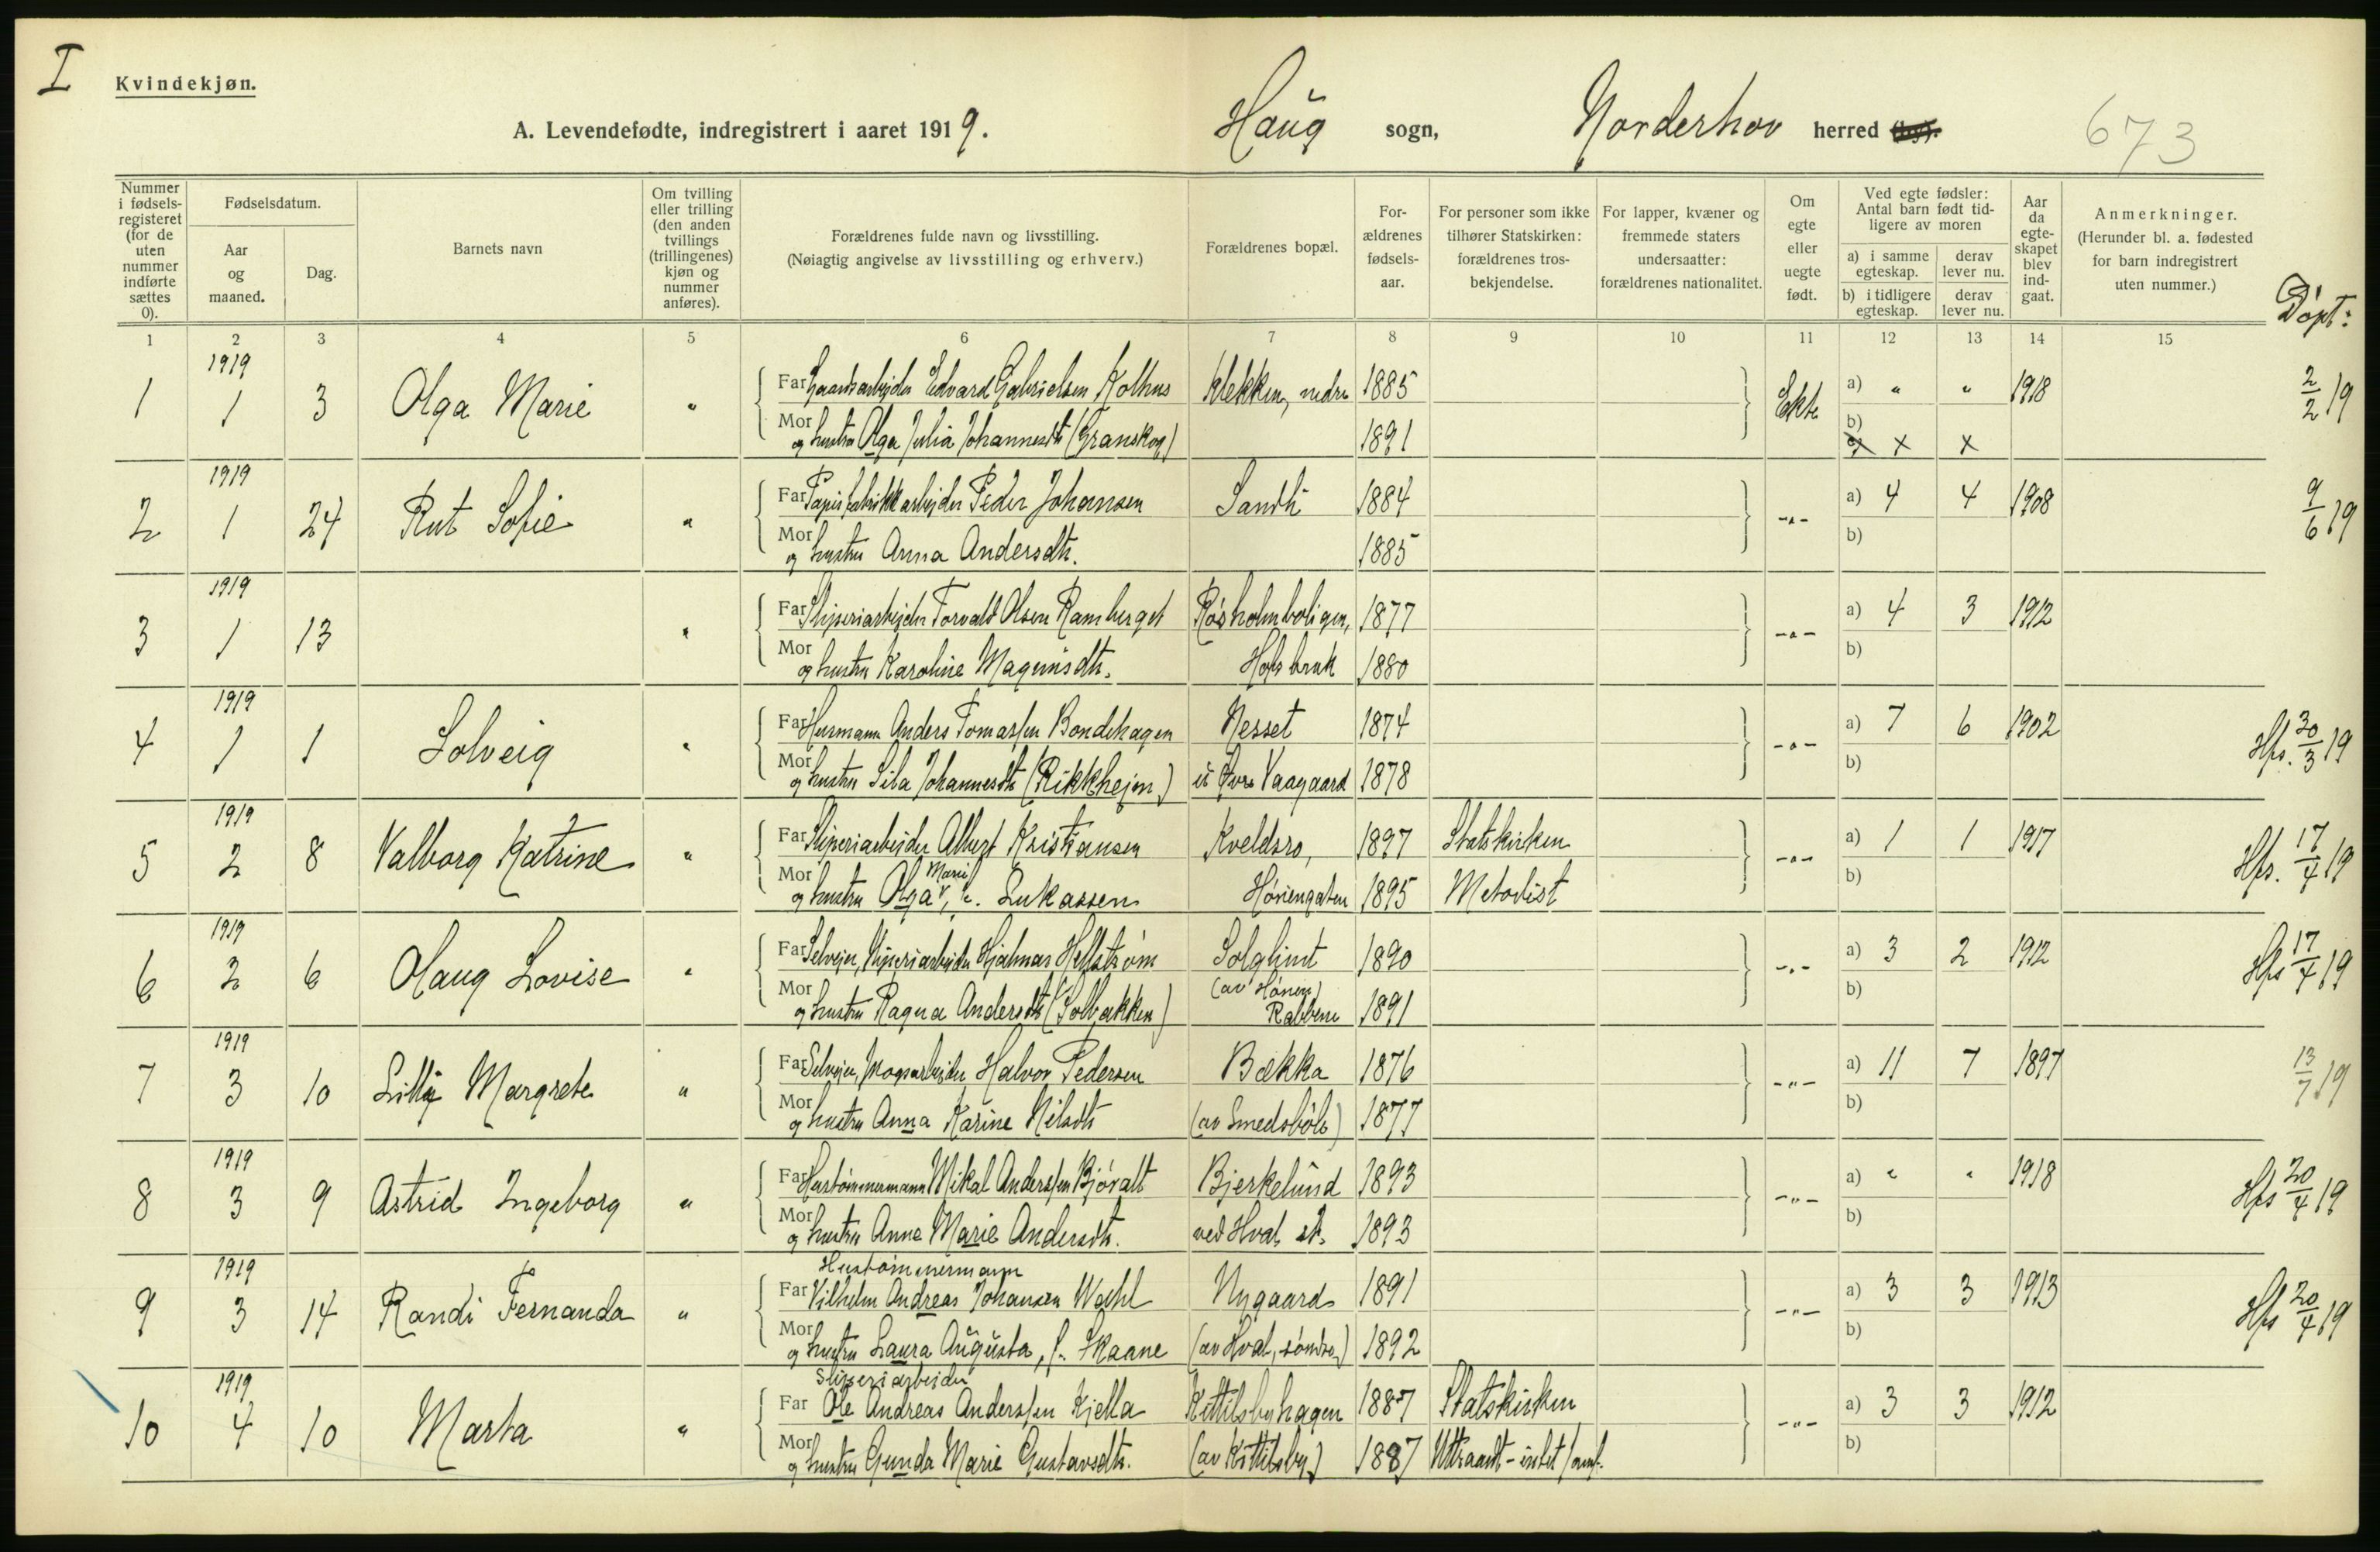 I
Kvindekjøn.
A. Levendefødte, indregistrert i aaret 1919. Haug sogn, Norderhov herred (by). 673
Nummer i fødsels-registeret (for de uten nummer indførte sættes 0).
Fødselsdatum.
Aar og maaned.
Dag.
Barnets navn
Om tvilling eller trilling (den anden tvillings (trillingenes) kjøn og nummer anføres).
Forældrenes fulde navn og livsstilling.
(Nøiagtig angivelse av livsstilling og erhverv.)
Forældrenes bopæl.
For-ældrenes fødsels-aar.
For personer som ikke tilhører Statskirken: forældrenes tros-bekjendelse.
For lapper, kvæner og fremmede staters undersaatter: forældrenes nationalitet.
Om egte eller uegte født.
Ved egte fødsler: Antal barn født tid-ligere av moren
a) i samme egteskap.
derav lever nu.
b) i tidligere egteskap.
derav lever nu.
Aar da egte-skapet blev ind-gaat.
Anmerkninger.
(Herunder bl. a. fødested for barn indregistrert uten nummer.)
Döpt:
1 2 3 4 5 6 7 8 9 10 11 12 13 14 15
1919
1 1 3 Olga Marie " Far Gaardsarbejder Edvard Gabrielsen Kolhus Klekken, nedre 1885 Ekte a) " " 1918 2/2 19
Mor og hustru Olga Julia Johannesdtr (Granskog) 1891 b)
a) x x
1919
2 1 24 Rut Sofie " Far Papirfabrikkarbejder Peder Johansen Sandli 1884 -"- a) 4 4 1908 9/6 19
Mor og hustru Anna Andersdtr. 1885 b)
1919
3 1 13 " Far Sliperiarbejder Torvald Olsen Ramberget Røsholmboligen, 1877 -"- a) 4 3 1912
Mor og hustru Karoline Magnusdtr. Hofsbruk 1880 b)
1919
4 1 1 Solveig " Far Husmann Anders Tomassen Bondehagen Nesset 1874 -"- a) 7 6 1902 Hfs. 30/3 19
Mor og hustru Johannesdtr (Rikkhejm) Vaagaard 1878 b)
1919
5 2 8 Valborg Katrine " Far Sliperiarbejder Albert Kristiansen Kveldsro, 1897 Statskirken -"- a) 1 1 1917 Hfs. 17/4 19
Mor og hustru Olga Marie, f. Lukassen Höriengaten 1895 Metodist b)
1919
6 2 6 Olaug Lovise " Far Selvejer, Sliperiarbejder Hjalmar Hellström Solglimt 1890 -"- a) 3 2 1912 Hfs 17/4 19
Mor og hustru Ragna Andersdtr (Solbakken) (av Hönen) Rabbene 1891 b)
1919
7 3 10 Lilly Margrete " Far Selvejer, skogsarbejder Halvor Pedersen Bækka 1876 -"- a) 11 7 1897 13/7 19
Mor og hustru Anna Karine Nilsdtr (av Smedsböle) 1877 b)
1919
8 3 9 Astrid Ingeborg " Far Hustömmermann Mikal Anderssen Björalt Bjerkelund 1893 -"- a) " " 1918 Hfs 20/4 19
Mor og hustru Anne Marie Andersdtr. ved Hval st. 1893 b)
1919 Hustömmermann
9 3 14 Randi Fernanda " Far Vilhelm Andreas Johansen Wæhl Nygaard 1891 -"- a) 3 3 1913 Hfs 20/4 19
Mor og hustru Laura Augusta, f. Skaane (av Hval, söndre) 1892 b)
1919 Sliperiarbejder
10 4 10 Marta " Far Ole Andreas Anderssen Kjella Kittilsbyhagen 1887 Statskirken -"- a) 3 3 1912
Mor og hustru Gunda Marie Gustavsdtr. (av Kittilsby) 1887 Uttraadt - intet samf. b)